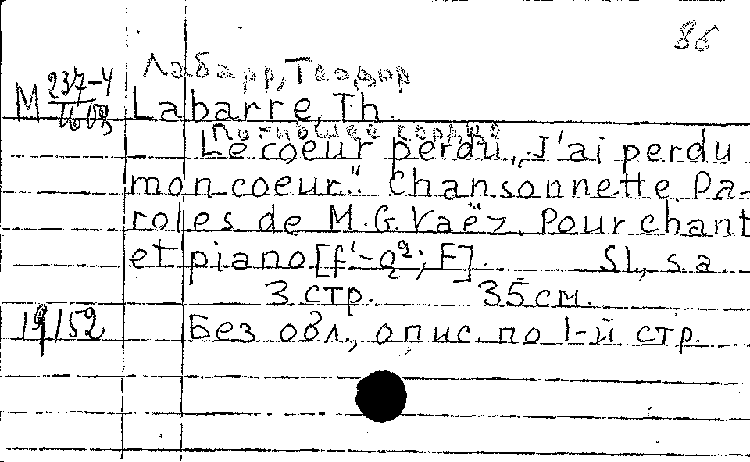 86
Лабарр, Теодор
М 237-4 Labarre, Th.
Погибшее сердце
Le coeur perdu. „J'ai perdu
mon coeur." Chansonnette. Pa-
roles de M. G. Vaëz. Pour chant
et piano [f¹-g²; F]. Sl, s.a.
3 стр. 35 см.
19152 Без обл., опис. по 1-й стр.